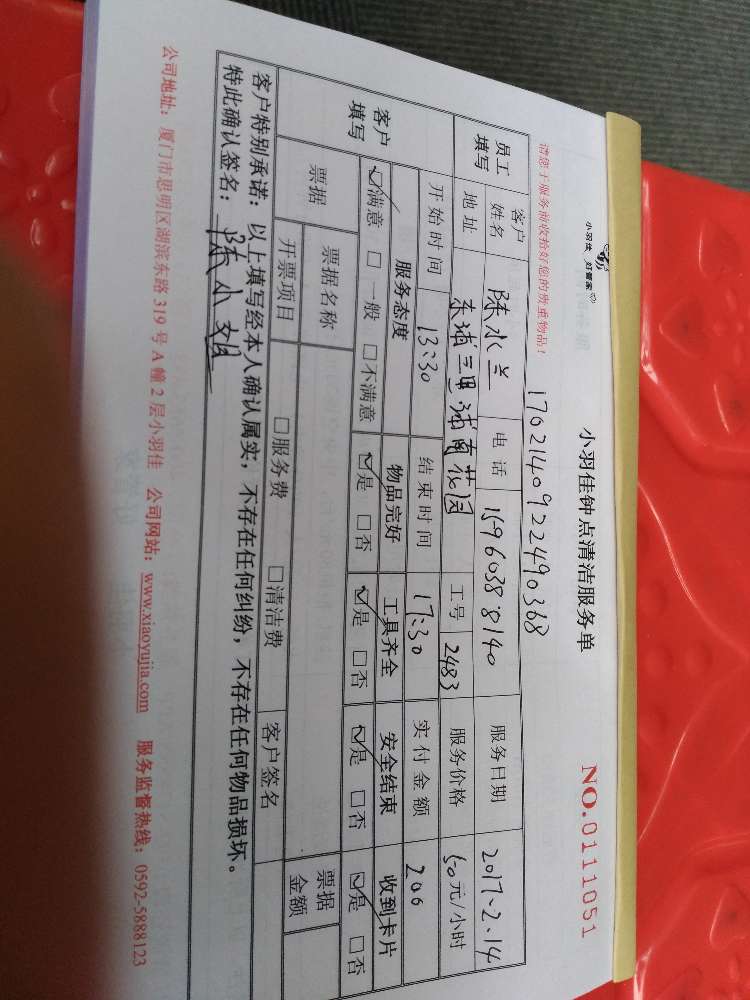 小羽佳 好管家
小羽佳钟点清洁服务单
NO.0111051
1702140922490368
请您于服务前收拾好您的贵重物品！
员工填写 客户姓名 陈水兰 电话 15960388140 服务日期 2017.2.14
地址 东浦三里浦南花园 工号 2483 服务价格 50元/小时
开始时间 13:30 结束时间 17:30 实付金额 200
客户填写 服务态度 物品完好 工具齐全 安全结束 收到卡片
☑满意 □一般 □不满意 ☑是 □否 ☑是 □否 ☑是 □否 ☑是 □否
票据 票据名称 票据金额
开票项目 □服务费 □清洁费 客户签名
客户特别承诺：以上填写经本人确认属实，不存在任何纠纷，不存在任何物品损坏。
特此确认签名：陈小姐
公司地址：厦门市思明区湖滨东路319号A幢2层小羽佳 公司网站：www.xiaoyujia.com 服务监督热线：0592-5888123